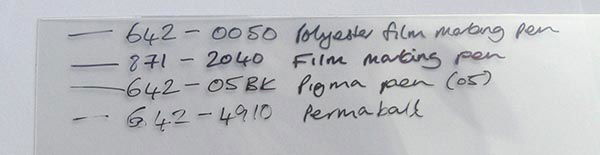 — 642-0050 Polyester film marking pen
— 871-2040 Film marking pen
— 642-05BK Pigma pen (05)
— 642-4910 Permaball